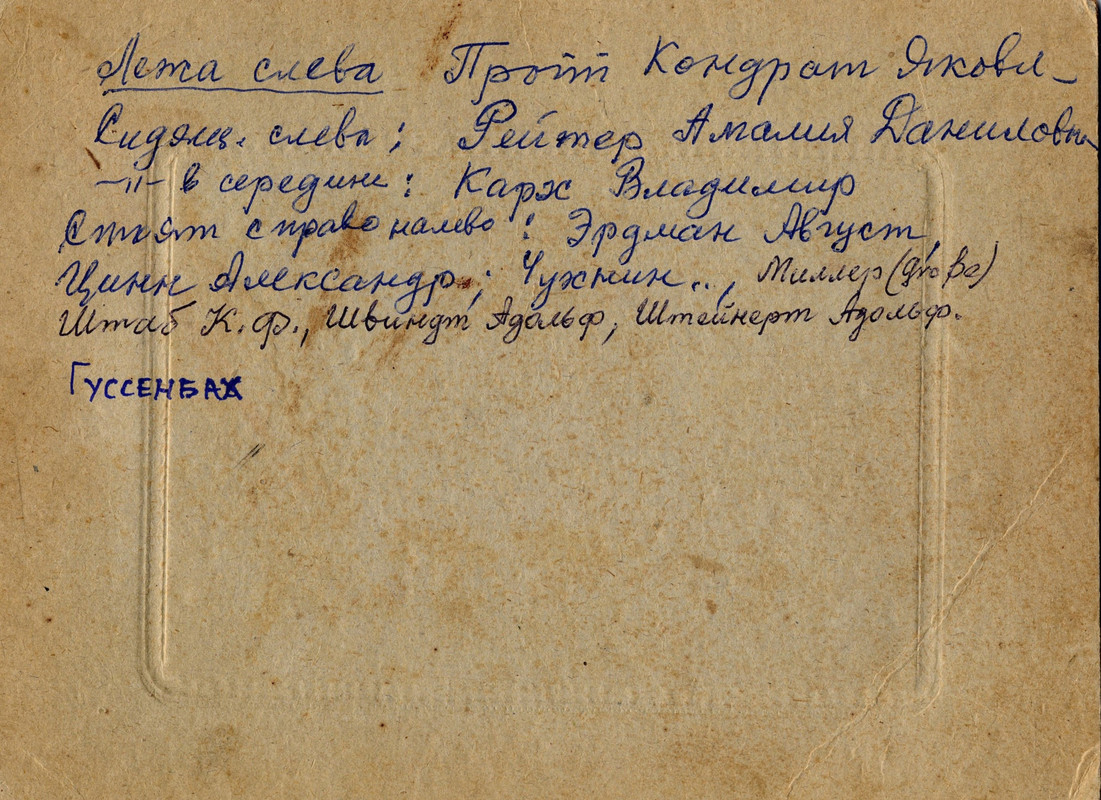 Лежа слева Протт Кондрат Яковл-
Сидящ. слева: Рейтер Амалия Даниловн
-"- в середине: Карх Владимир
Стоят справо налево: Эрдман Август,
Цинн Александр; Чухнин.., Миллер
Штаб К.Ф., Швиндт Адольф, Штейнерт Адольф.
ГУССЕНБАХ